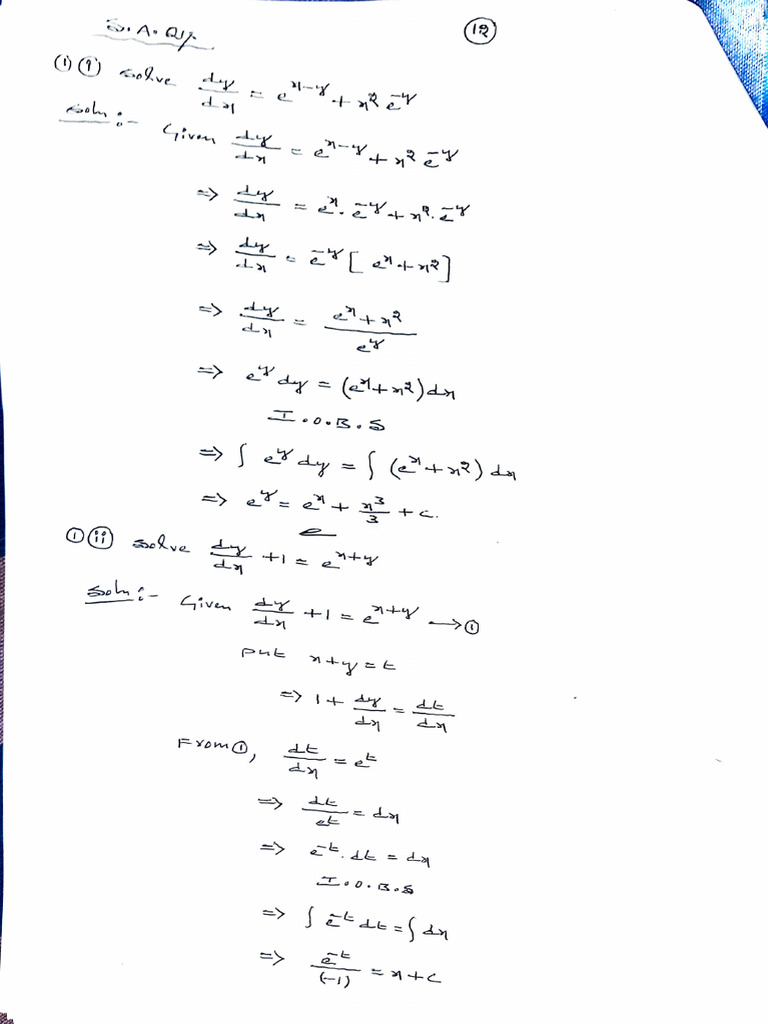 S.A.Q's
(12)
(1) (i) Solve dy/dx = e^(x-y) + x² e^-y
Soln :- Given dy/dx = e^(x-y) + x² e^-y
=> dy/dx = e^x . e^-y + x² . e^-y
=> dy/dx = e^-y [ e^x + x² ]
=> dy/dx = (e^x + x²)/e^y
=> e^y dy = (e^x + x²) dx
I.O.B.S
=> ∫ e^y dy = ∫ (e^x + x²) dx
=> e^y = e^x + x³/3 + c.
(1) (ii) Solve dy/dx + 1 = e^(x+y)
Soln :- Given dy/dx + 1 = e^(x+y) → (1)
put x+y = t
=> 1 + dy/dx = dt/dx
From (1), dt/dx = e^t
=> dt/e^t = dx
=> e^-t . dt = dx
I.O.B.S
=> ∫ e^-t dt = ∫ dx
=> e^-t/(-1) = x + c